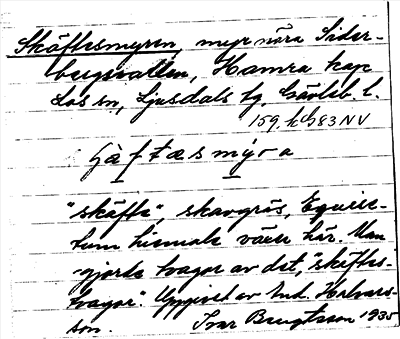 Skäftesmyren, myr nära Sider-
bergsvallen, Hamra kap.
Los sn, Ljusdals tg. Gävleb. l.
159. hG83NV
ʃäftæsmýra
"skäfte", skavgräs, Equise-
tum hiemale växer här. Man
gjorde tvagor av det, "skäftes-
tvagor". Uppgivet av And. Halvars-
son. Ivar Bengtsson 1935